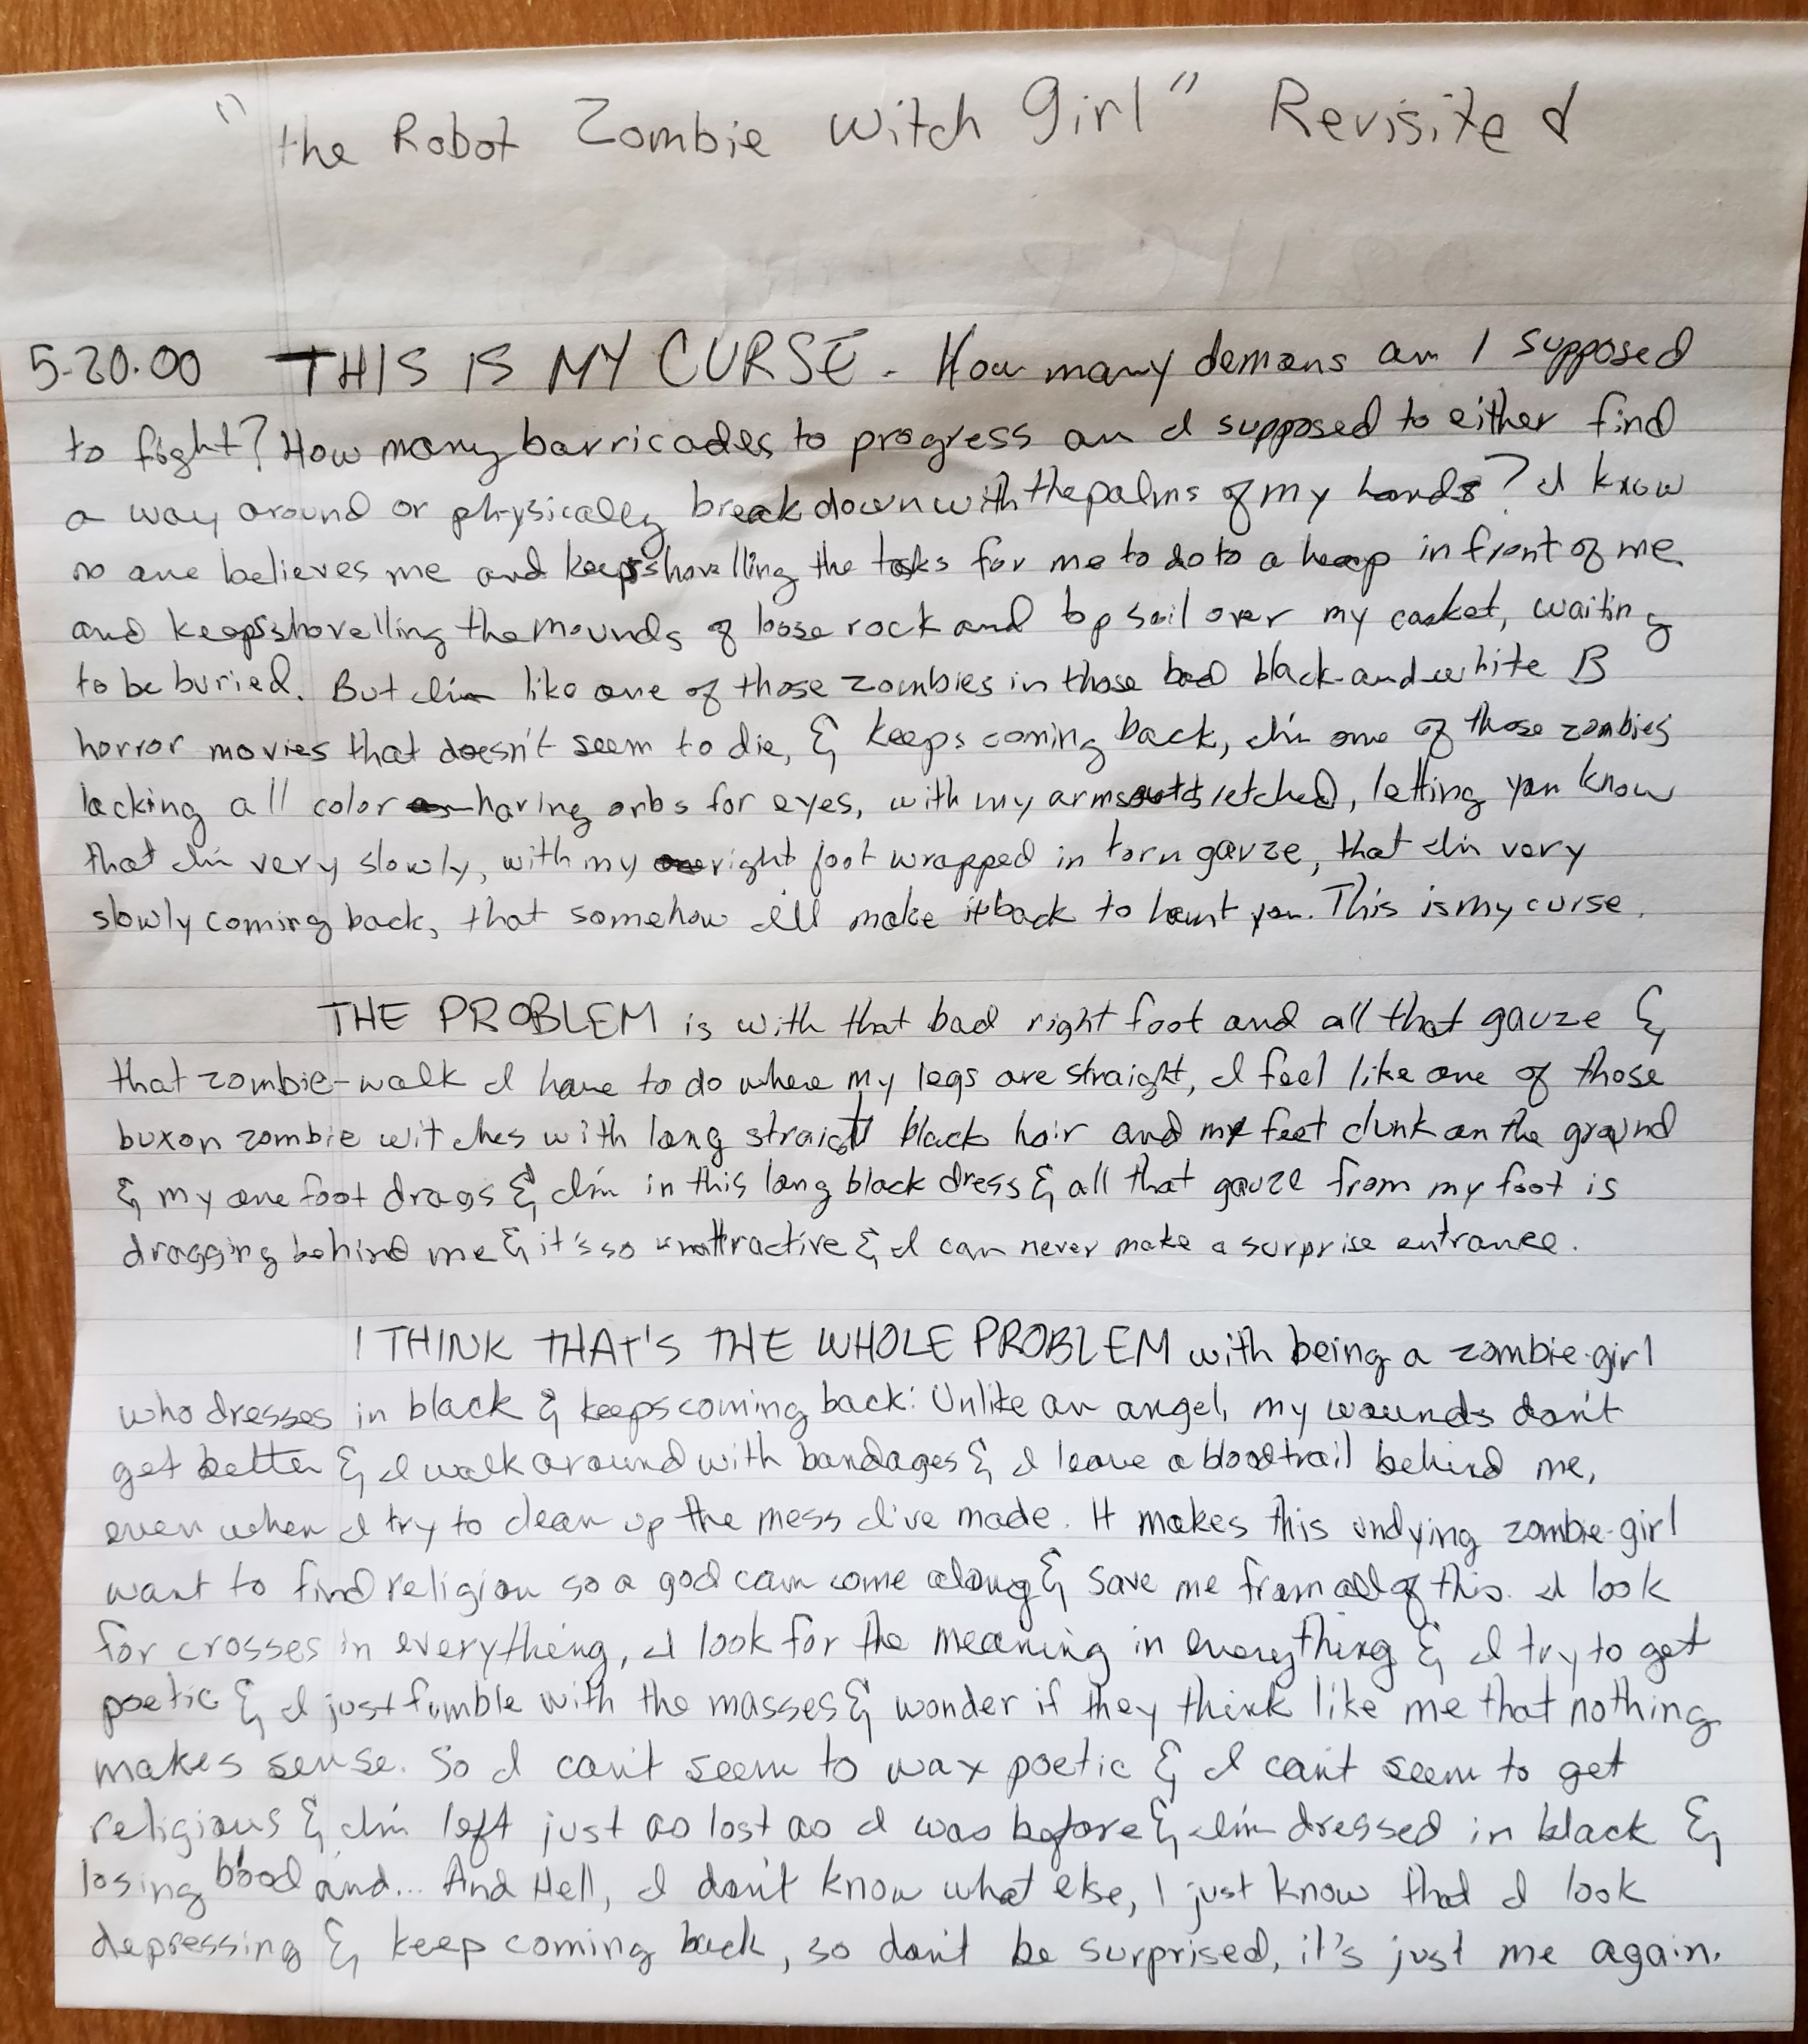 "the Robot Zombie Witch Girl" Revisited
5-20.00 THIS IS MY CURSE. How many demons am I supposed
to fight? How many barricades to progress am I supposed to either find
a way around or physically break down with the palms of my hands? I know
no one believes me and keeps shovelling the tasks for me to do to a heap in front of me
and keeps shovelling the mounds of loose rock and top soil over my casket, waiting
to be buried. But I'm like one of those zombies in those bad black-and-white B
horror movies that doesn't seem to die, & keeps coming back, I'm one of those zombies
lacking all color having orbs for eyes, with my arms outstretched, letting you know
that I'm very slowly, with my right foot wrapped in torn gauze, that I'm very
slowly coming back, that somehow I'll make it back to haunt you. This is my curse.
THE PROBLEM is with that bad right foot and all that gauze &
that zombie-walk I have to do where my legs are straight, I feel like one of those
buxon zombie witches with long straight black hair and my feet clunk on the ground
& my one foot drags & I'm in this long black dress & all that gauze from my foot is
dragging behind me & it's so unattractive & I can never make a surprise entrance.
I THINK THAT'S THE WHOLE PROBLEM with being a zombie-girl
who dresses in black & keeps coming back: Unlike an angel, my wounds don't
get better & I walk around with bandages & I leave a blood trail behind me,
even when I try to clean up the mess I've made. It makes this undying zombie-girl
want to find religion so a god can come along & save me from all of this. I look
for crosses in everything, I look for the meaning in everything & I try to get
poetic & I just fumble with the masses & wonder if they think like me that nothing
makes sense. So I can't seem to wax poetic & I can't seem to get
religious & I'm left just as lost as I was before & I'm dressed in black &
losing blood and... And Hell, I don't know what else, I just know that I look
depressing & keep coming back, so don't be surprised, it's just me again.